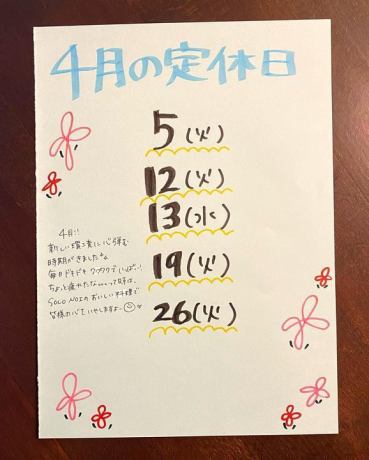 4月の定休日
5(火)
12(火)
13(水)
19(火)
26(火)
4月!!
新しい環境に心弾む
時期がきましたね
毎日ドキドキワクワクでいっぱい!
ちょっと疲れたな…って時は、
SOLO NOIのおいしい料理で
皆様の心をいやしますよー